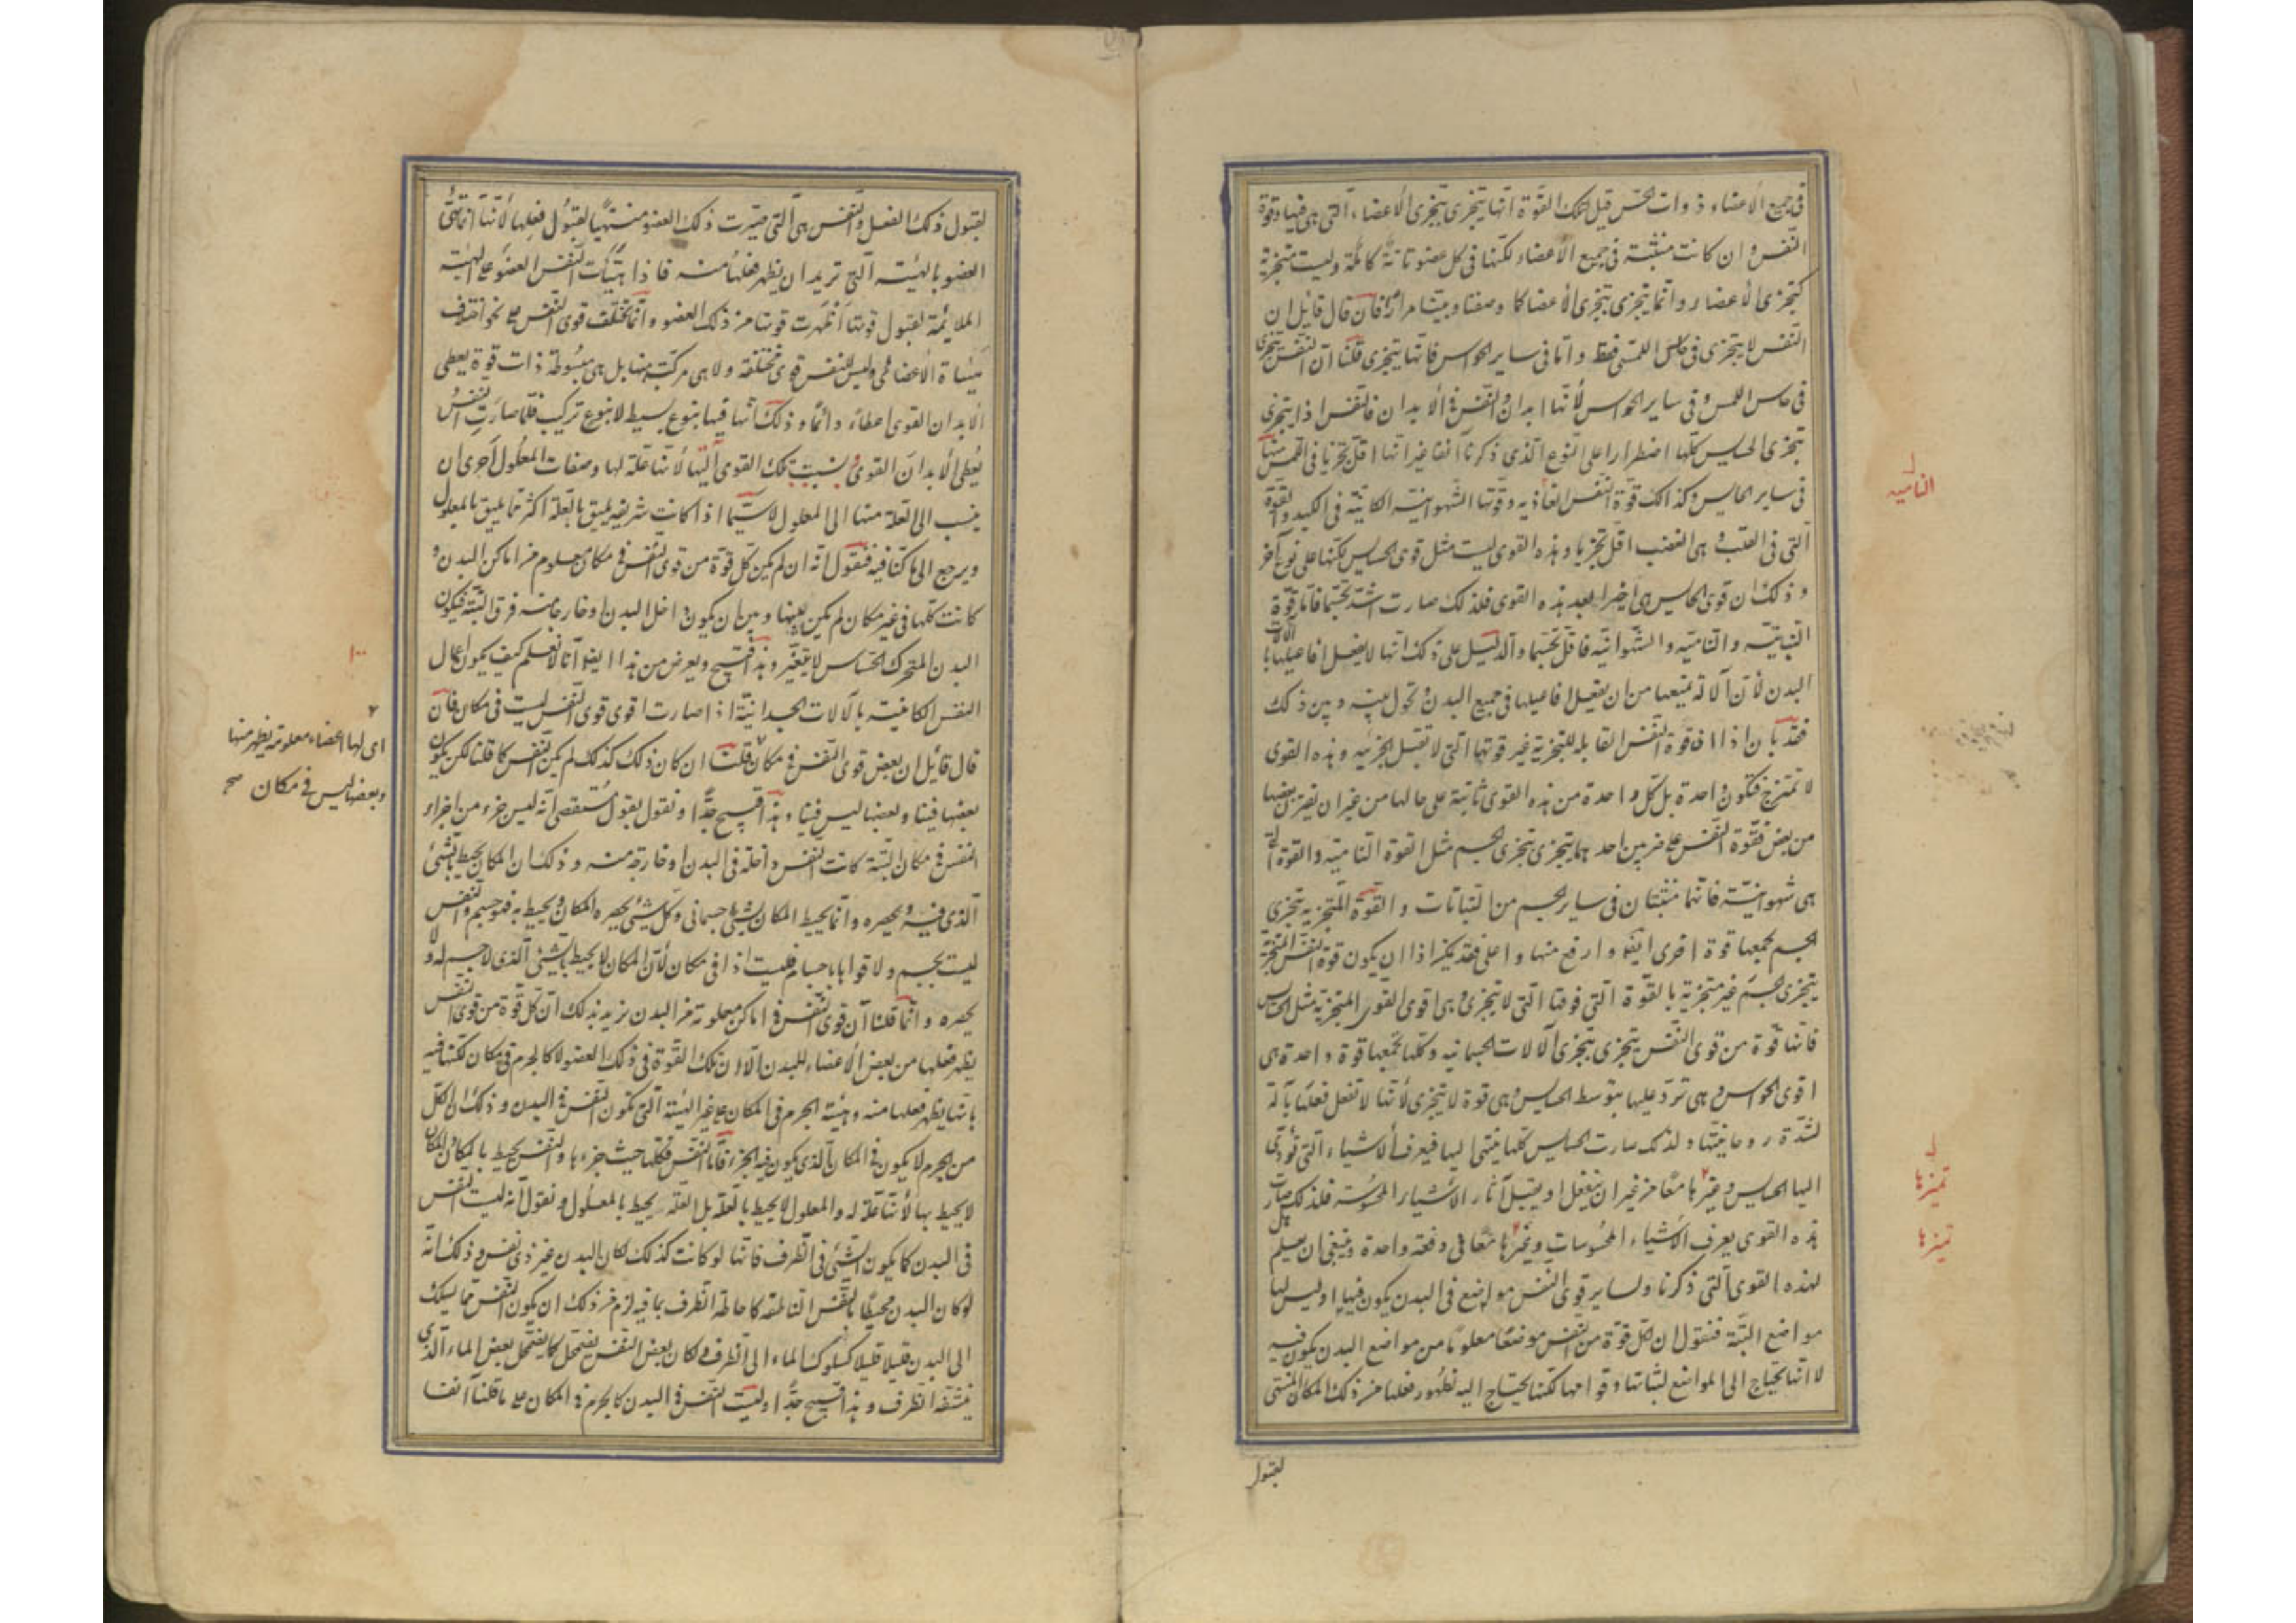 في جميع الأعضاء ذوات الحس قيل لتلك القوة انها يتجزى بتجزى الأعضاء التي هي فيها وقوة
النفس وان كانت منبثة في جميع الأعضاء لكنها في كل عضو تامة كاملة وليست متجزية
كتجزى الأعضاء وانما يتجزى بتجزى الأعضا كما وصفنا وبينا مرارا فان قال قايل ان
النفس لا يتجزى في حاس اللمس فقط واما في ساير الحواس فانها يتجزى قلنا ان النفس يتجزى
في حاس اللمس وفي ساير الحواس لأنها ابدان والنفس في الأبدان فالنفس اذا يتجزى
بتجزى الحسايس كلها اضطرارا على النوع الذي ذكرنا آنفا غير انها اقل تجزيا في اللمس منها
في ساير الحسايس وكذلك قوة النفس الغاذيه وقوتها الشهوانية الكائنة في الكبد والقوة
التي في القلب وهي الغضب اقل تجزيا وهذه القوى ليست مثل قوى الحسايس لكنها على نوع آخر
وذلك ان قوى الحسايس هي اخيرا بعد هذه القوى فلذلك صارت اشد تجسما فاما قوة
النباتية والنامية والشهوانية فاقل تجسما والدليل على ذلك انها لا يفعل افاعيلها بآلات
البدن لأن الآلة تمنعها من ان يفعل افاعيلها في جميع البدن وتحول بينه وبين ذلك
فقد بان اذا ان قوة النفس القابلة للتجزية غير قوتها التي لا تقبل التجزية وهذه القوى
لا تمتزج فتكون واحدة بل كل واحدة من هذه القوى ثابتة على حالها من غير ان يفترق بعضها
من بعض فقوة النفس على ضربين احدهما يتجزى بتجزى الجسم مثل القوة النامية والقوة التي
هي شهوانية فانهما منبثتان في ساير الجسم من النباتات والقوة المتجزية بتجزى
الجسم يجمعها قوة اخرى ايضا وارفع منها واعلى فقد يمكن اذا ان يكون قوة النفس المتجزية
بتجزى الجسم غير متجزية بالقوة التي فوقها التي لا يتجزى وهي اقوى القوى المتجزية مثل الحسايس
فانها قوة من قوى النفس يتجزى بتجزى الآلات الجسمانيه وكلها تجمعها قوة واحدة هي
اقوى الحواس وهي ترد عليها بتوسط الحسايس وهي قوة لا يتجزى لأنها لا تفعل فعلها بآلة
لشدة روحانيتها ولذلك صارت الحسايس كلها ينتهى اليها فيعرف الأشياء التي تؤدى
اليها الحسايس وغيرها معا من غير ان ينفعل او يقبل آثار الأشياء المحسوسة فلذلك صارت
هذه القوى يعرف الأشياء المحسوسات وغيرها معا في دفعة واحدة وينبغي ان يعلم هل
لهذه القوى التي ذكرنا ولساير قوى النفس مواضع في البدن يكون فيها او ليس لها
مواضع البتة فنقول ان لكل قوة من النفس موضعا معلوما من مواضع البدن يكون فيه
لا انها تحتاج الى المواضع لثباتها وقوامها لكنها يحتاج اليه لظهور فعلها من ذلك المكان المتهيئ
لقبول
النامية
تميزها
تميزها
لقبول ذلك الفعل والنفس هي التي صيرت ذلك العضو متهيئا لقبول فعلها لأنها انما تهئ
العضو بالهيئة التي تريد ان يظهر فعلها منه فاذا هيأت النفس العضو على الهيئة
الملائمة لقبول قوتها اظهرت قوتها من ذلك العضو وانما تختلف قوى النفس على نحو اختلاف
هيئات الأعضاء وليس للنفس قوى مختلفة ولا هي مركبة منها بل هي مبسوطة ذات قوة يعطى
الأبدان القوى اعطاء دائما وذلك انها فيها بنوع بسيط لا بنوع تركيب فلما صارت النفس
يعطى الأبدان القوى نسبت تلك القوى اليها لأنها علة لها وصفات المعلول احرى ان
ينسب الى العلة منها الى المعلول لا سيما اذا كانت شريفة يليق بالعلة اكثر مما يليق بالمعلول
ويرجع الى ما كنا فيه فنقول انه ان لم يكن كل قوة من قوى النفس في مكان معلوم من اماكن البدن و
كانت كلها في غير مكان لم يكن بينها وبين ان يكون داخل البدن او خارجا منه فرق البتة فيكون
البدن المتحرك الحساس لا يتغير وهذا قبيح ويعرض من هذا ايضا انا لا نعلم كيف يكون اعمال
النفس الكائنة بالآلات الجسدانية اذا صارت اقوى قوى النفس ليست في مكان فان
قال قائل ان بعض قوى النفس في مكان قلنا ان كان ذلك كذلك لم يكن النفس كما قلنا لكن يكون
بعضها فينا وبعضها ليس فينا وهذا قبيح جدا ونقول بقول مستقصى انه ليس جزء من اجزاء
النفس في مكان البتة كانت النفس داخلة في البدن او خارجة منه وذلك ان المكان يحيط بالشئ
الذي فيه ويحصره وانما يحيط المكان بشئ جسماني وكل شئ يحصره المكان ويحيط به فهو جسم والنفس
ليست بجسم ولا قواها باجسام فليست اذا في مكان لأن المكان لا يحيط بالشئ الذي لا جسم له ولا
يحصره وانما قلنا ان قوى النفس في اماكن معلومة من البدن نريد بذلك ان كل قوة من قوى النفس
يظهر فعلها من بعض الأعضاء للبدن الا ان تلك القوة في ذلك العضو لا كالجرم في مكان لكنها فيه
بانها يظهر فعلها منه وهيئة الجرم في المكان على غير الهيئة التي تكون النفس في البدن وذلك ان الكل
من الجرم لا يكون في المكان الذي يكون فيه الجزء فاما النفس فكلها حيث جزءها والنفس يحيط بالمكان والمكان
لا يحيط بها لأنها علة له والمعلول لا يحيط بالعلة بل العلة يحيط بالمعلول ونقول انه ليست النفس
في البدن كما يكون الشئ في الظرف فانها لو كانت كذلك لكان البدن غير ذي نفس وذلك انه
لو كان البدن محيطا بالنفس الناطقة كاحاطة الظرف بما فيه لزم من ذلك ان يكون النفس مما يسلك
الى البدن قليلا قليلا كسلوك الماء الى الظرف ولكان بعض النفس يضمحل كما يضمحل بعض الماء الذي
ينشفه الظرف وهذا قبيح جدا وليست النفس في البدن كالجرم في المكان على ما قلنا آنفا
اى لها اعضاء معلومة يظهر منها
وبعضها ليس في مكان صح